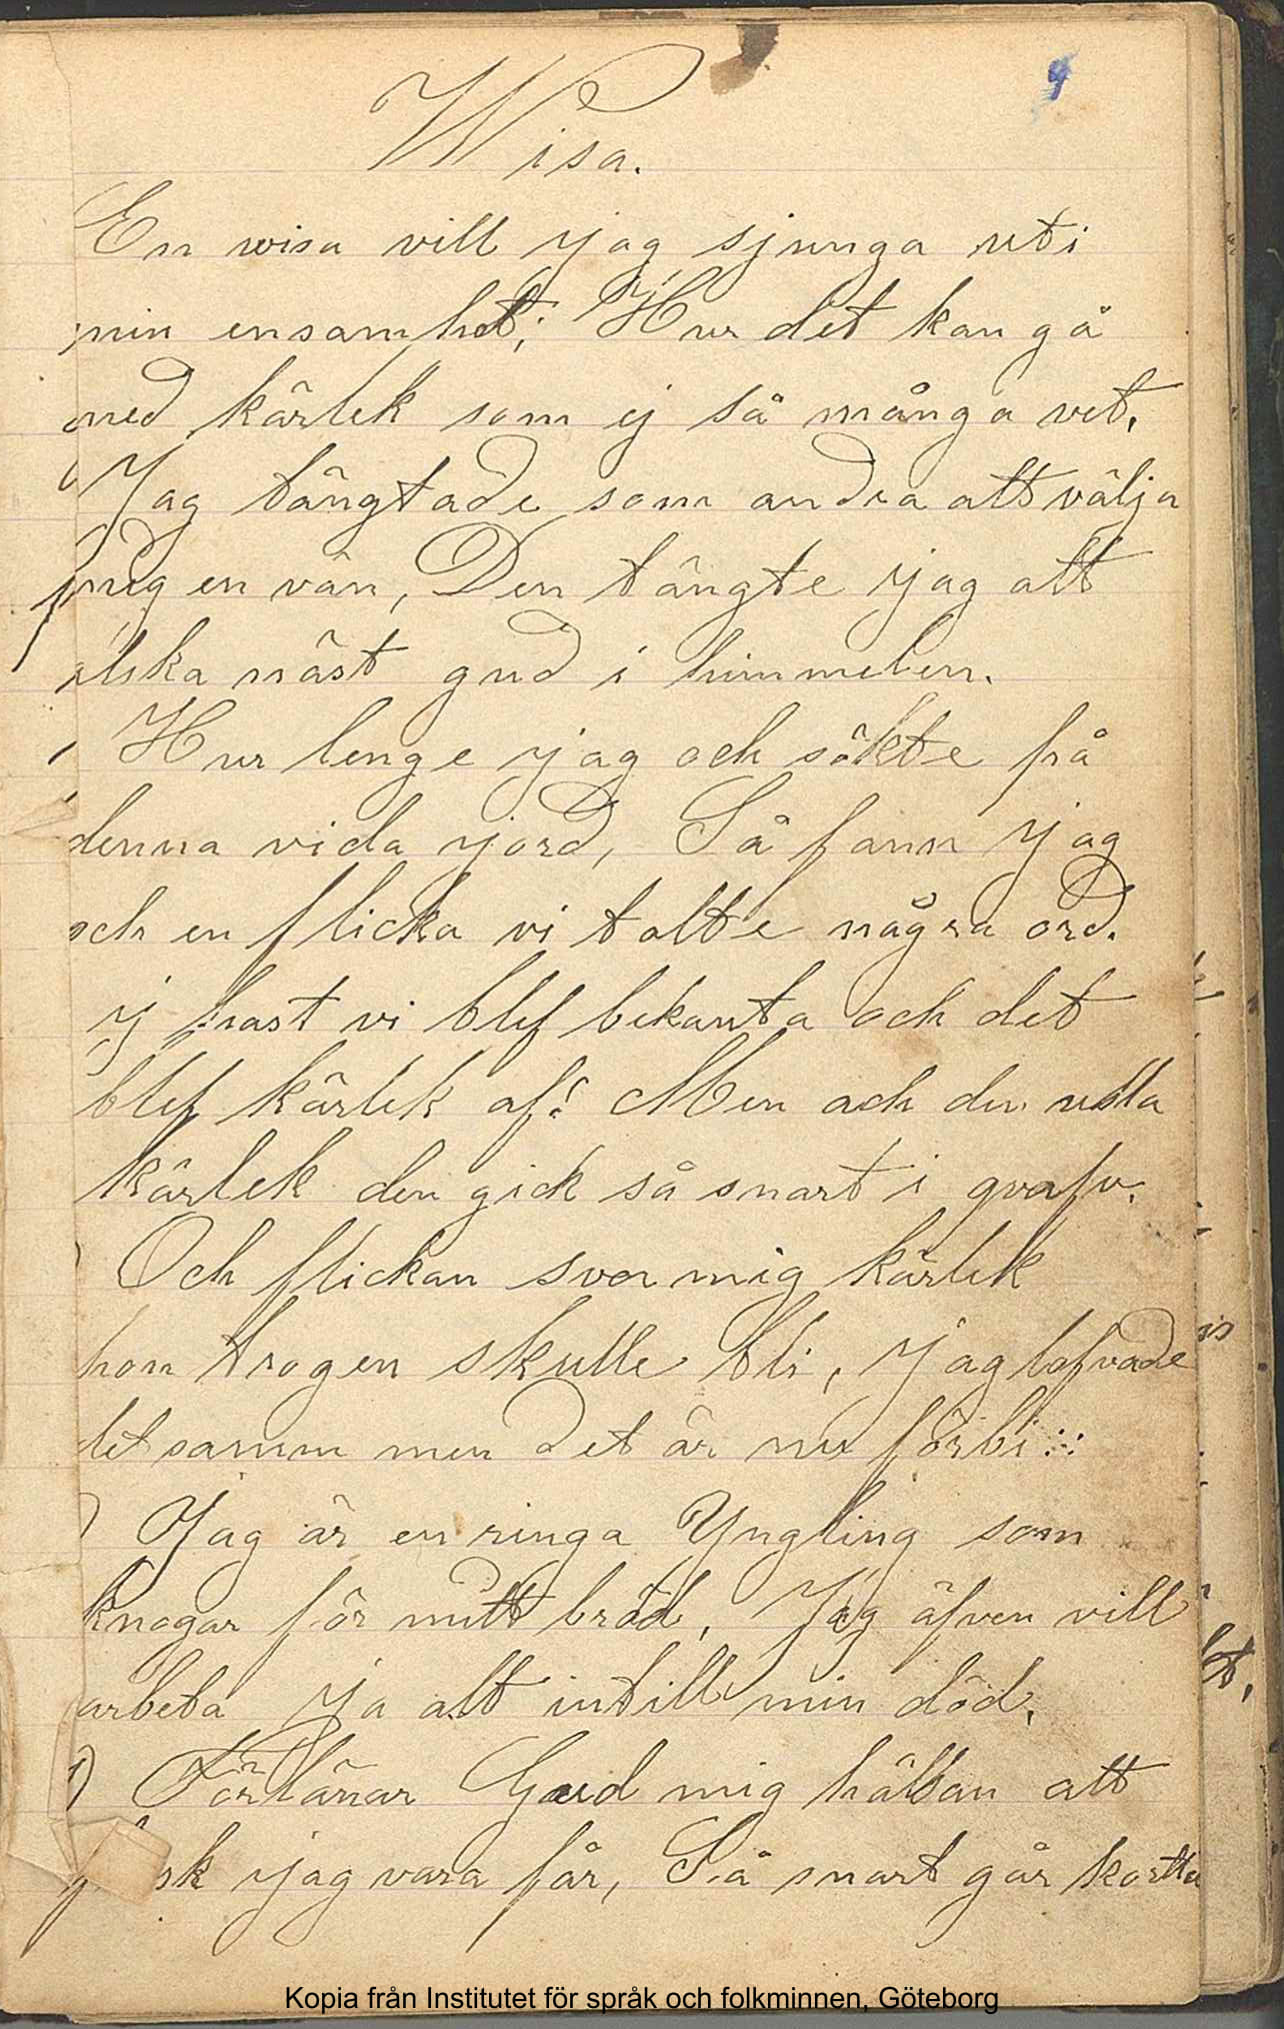 9
Wisa.
En wisa vill jag sjunga uti
min ensamhet; Hur det kan gå
med kärlek som ej så många vet,
Jag tängtade som andra att välja
mig en vän, Den tängte jag att
älska näst gud i himmelen.
Hur lenge jag och sökte på
denna vida jord, Så fann jag
och en flicka vi talte några ord.
ij hast vi blef bekanta och det
blef kärlek af! Men ack den usla
kärlek den gick så snart i grafv.
Och flickan svor mig kärlek
hon trogen skulle bli, jag lofvade
det samm men det är nu förbi
Jag är en ringa Yngling som
knogar för mitt bröd, Jag äfven vill
arbeta ja alt intill min död,
Förlänar Gud mig hälsan att
frisk jag vara får, Så snart går korta
Kopia från Institutet för språk och folkminnen, Göteborg